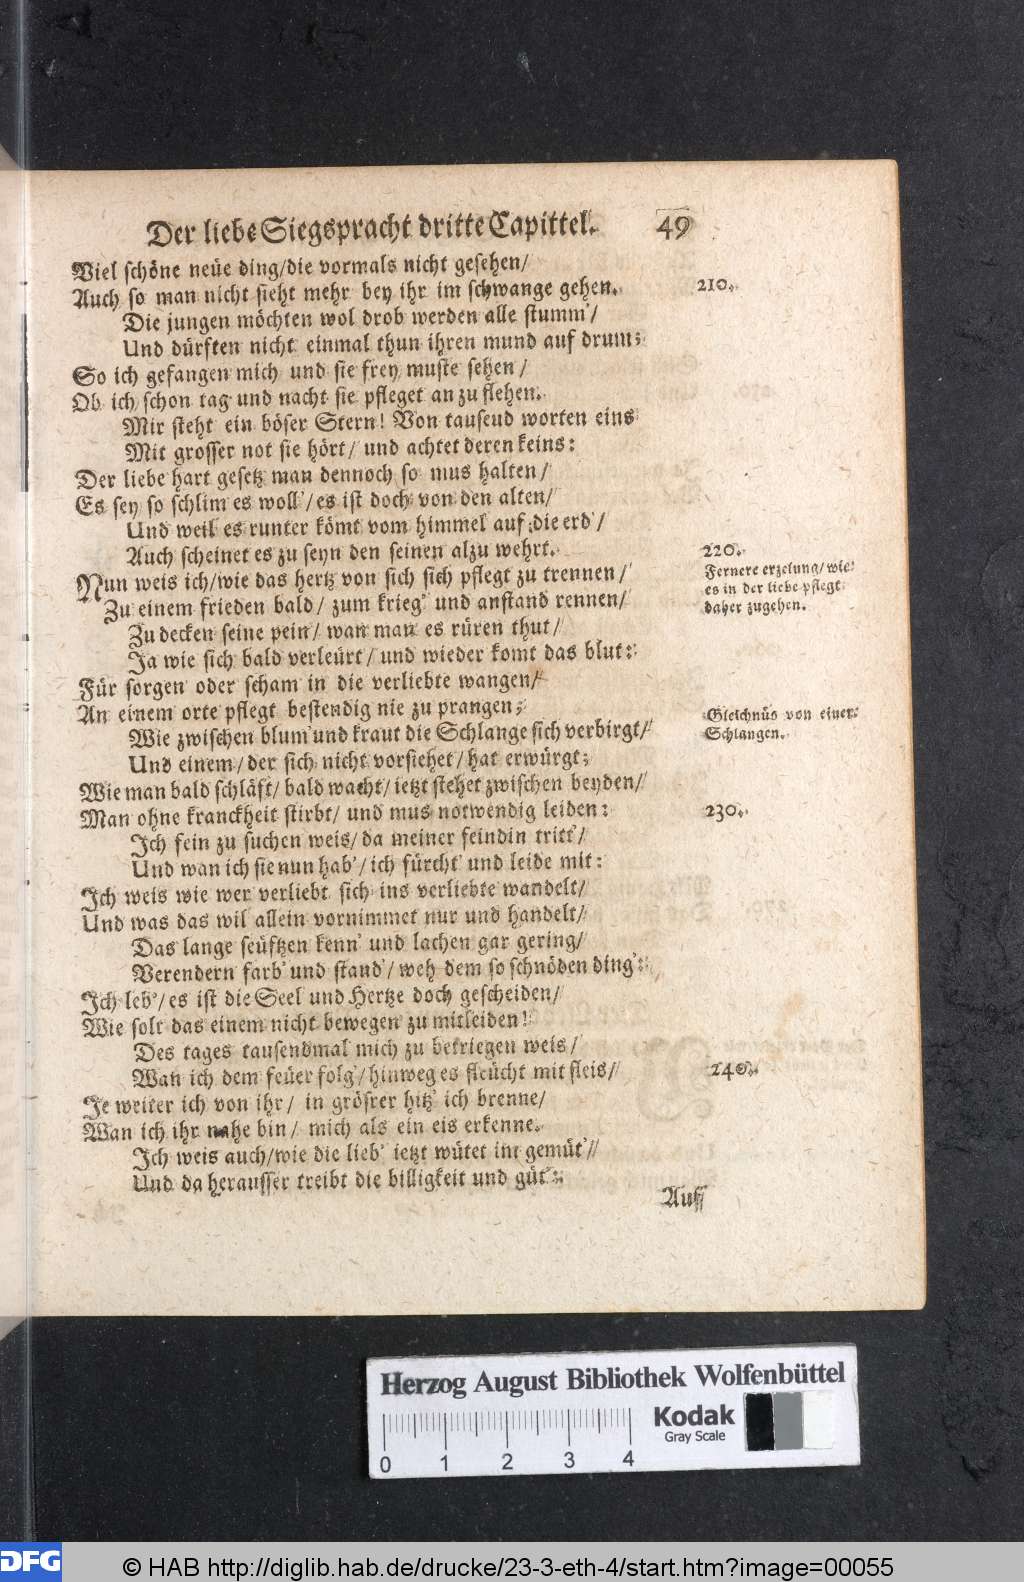 Der liebe Siegspracht dritte Capittel. 49
Viel schöne neüe ding/die vormals nicht gesehen/
Auch so man nicht sieht mehr bey ihr im schwange gehen. 210.
Die jungen möchten wol drob werden alle stumm'/
Und dürften nicht einmal thun ihren mund auf drum;
So ich gefangen mich und sie frey muste sehen/
Ob ich schon tag und nacht sie pfleget an zu flehen.
Mir steht ein böser Stern! Von tausend worten eins
Mit grosser not sie hört/ und achtet deren keins:
Der liebe hart gesetz man dennoch so mus halten/
Es sey so schlim es woll'/es ist doch von den alten/
Und weil es runter kömt vom himmel auf die erd'/
Auch scheinet es zu seyn den seinen alzu wehrt. 220.
Nun weis ich/wie das hertz von sich sich pflegt zu trennen/
Fernere erzelung/wie
es in der liebe pflegt
daher zugehen.
Zu einem frieden bald/ zum krieg' und anstand rennen/
Zu decken seine pein/ wan man es rüren thut/
Ja wie sich bald verleürt/ und wieder komt das blut:
Für sorgen oder scham in die verliebte wangen/
An einem orte pflegt bestendig nie zu prangen;
Gleichnüs von einer
Schlangen.
Wie zwischen blum' und kraut die Schlange sich verbirgt/
Und einem/der sich nicht vorsiehet/hat erwürgt;
Wie man bald schläft/ bald wacht/ ietzt stehet zwischen beyden/
Man ohne kranckheit stirbt/ und mus notwendig leiden: 230.
Ich fein zu suchen weis/ da meiner feindin tritt'/
Und wan ich sie nun hab'/ich fürcht' und leide mit:
Ich weis wie wer verliebt sich ins verliebte wandelt/
Und was das wil allein vornimmet nur und handelt/
Das lange seüftzen kenn' und lachen gar gering/
Verendern farb' und stand'/weh dem so schnöden ding':
Ich leb'/es ist die Seel und Hertze doch gescheiden/
Wie solt das einem nicht bewegen zu mitleiden!
Des tages tausendmal mich zu bekriegen weis/
Wan ich dem feüer folg'/hinweg es fleücht mit fleis/ 240.
Je weiter ich von ihr/ in grösrer hitz' ich brenne/
Wan ich ihr nahe bin/ mich als ein eis erkenne.
Ich weis auch/wie die lieb' ietzt wütet im gemüt'/
Und da herausser treibt die billigkeit und güt':
Auf
Herzog August Bibliothek Wolfenbüttel
Kodak
Gray Scale
0 1 2 3 4
DFG © HAB http://diglib.hab.de/drucke/23-3-eth-4/start.htm?image=00055